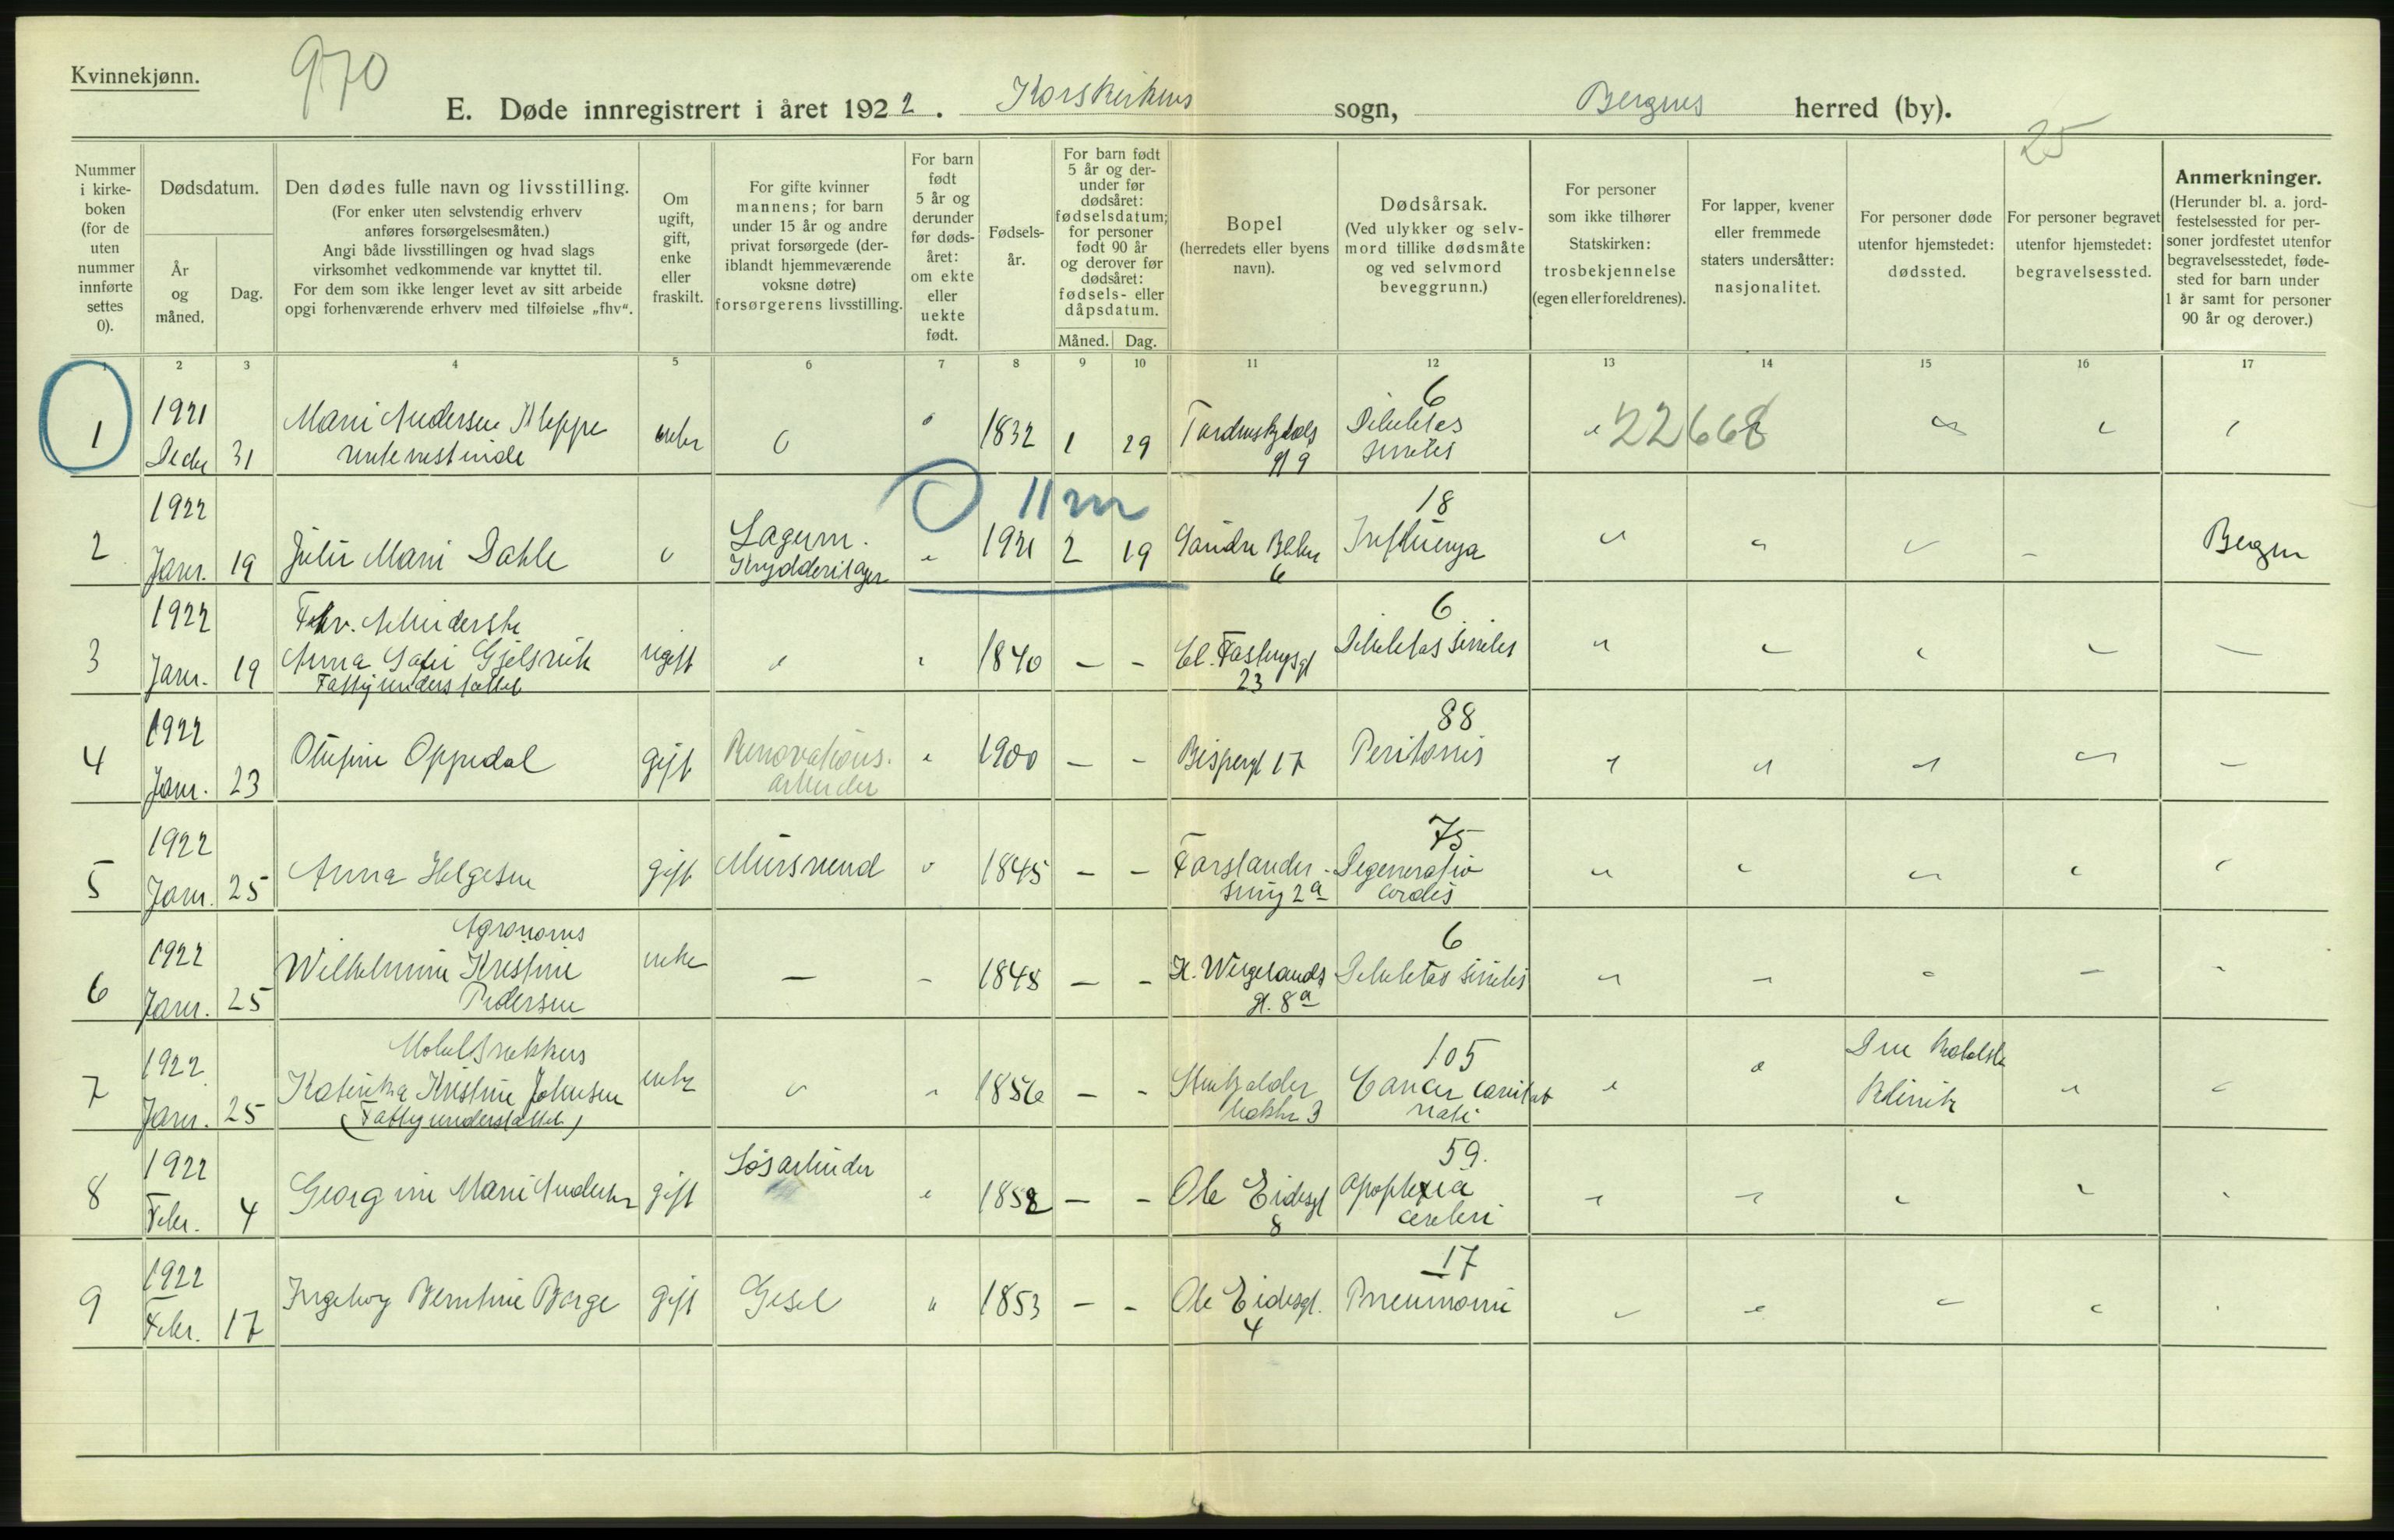 Kvinnekjønn.
970
E. Døde innregistrert i året 1922. Korskirkens sogn, Bergens herred (by).
25
Nummer i kirke-boken (for de uten nummer innførte settes 0).
Dødsdatum.
År og måned.
Dag.
Den dødes fulle navn og livsstilling.
(For enker uten selvstendig erhverv anføres forsørgelsesmåten.)
Angi både livsstillingen og hvad slags virksomhet vedkommende var knyttet til.
For dem som ikke lenger levet av sitt arbeide opgi forhenværende erhverv med tilføielse „fhv“.
Om ugift, gift, enke eller fraskilt.
For gifte kvinner mannens; for barn under 15 år og andre privat forsørgede (der-iblandt hjemmeværende voksne døtre) forsørgerens livsstilling.
For barn født 5 år og derunder før døds-året: om ekte eller uekte født.
Fødsels-år.
For barn født 5 år og der-under før dødsåret: fødselsdatum; for personer født 90 år og derover før dødsåret: fødsels- eller dåpsdatum.
Måned.
Dag.
Bopel
(herredets eller byens navn).
Dødsårsak.
(Ved ulykker og selv-mord tillike dødsmåte og ved selvmord beveggrunn.)
For personer som ikke tilhører Statskirken: trosbekjennelse (egen eller foreldrenes).
For lapper, kvener eller fremmede staters undersåtter: nasjonalitet.
For personer døde utenfor hjemstedet: dødssted.
For personer begravet utenfor hjemstedet: begravelsessted.
Anmerkninger.
(Herunder bl. a. jord-festelsessted for per-soner jordfestet utenfor begravelsesstedet, føde-sted for barn under 1 år samt for personer 90 år og derover.)
1 2 3 4 5 6 7 8 9 10 11 12 13 14 15 16 17
1 1921 31 Marie Andersen Kleppe enke 1832 1 29 6 22668
senilis
9
11 m
2 1922 Janr. 19 Julie Marie Dahle Lagerm. 1921 2 19 6 18 Influenza Bergen
Krydderilager
3 1922 Janr. 19 Fhv. Arbeiderske
Anna Gjelsvik ugift 1840 – – 23 6 Debilitas senilis
Fattigunderstøttet
4 1922 Janr. 23 Oppedal gift Renovations-arbeider 1900 – – Bispengt 17 88 Peritonis
5 1922 Janr. 25 Anna Helgesen gift Mursvend 1845 – – 2a 75 Degeneratio cordis
6 1922 Janr. 25 Agronoms
Wilhelmine Kristine Pedersen enke – – 1848 – – H. Wergelands gt. 8a 6 Debilitas senilis
7 1922 Janr. 25
Kristine Johnsen enke 1856 – – 3 105 Cancer
(Fattigunderstøttet)
Klinik
8 1922 Febr. 4 Georgine Marie gift Løsarbeider 1852 – – Ole Eidesgt 8 59. Apoplexia cerebri
9 1922 Febr. 17 Ingeborg Berntine Borge gift Gesel 1853 – – Ole Eidesgt. 4 17 Pneumoni